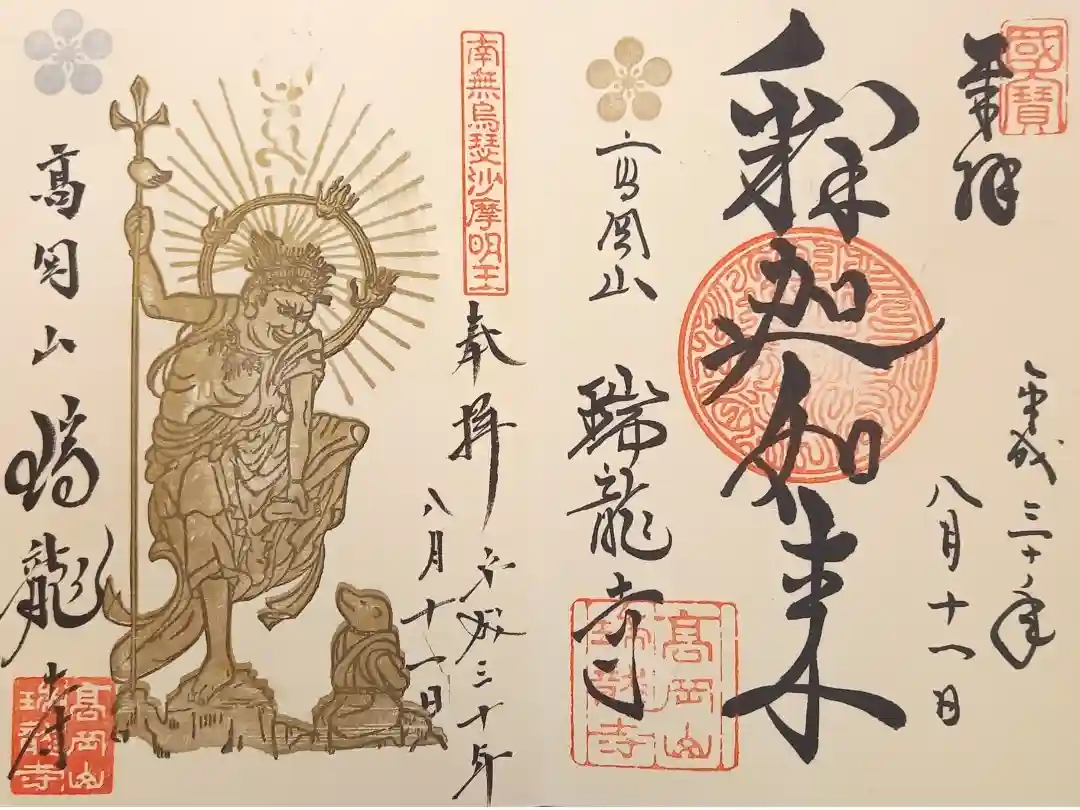 國寶
奉拝
平成三十年
八月十一日
釋迦如来
高岡山
瑞龍寺
高岡山
瑞龍寺
南無烏瑟沙摩明王
奉拝
平成三十年
八月十一日
高岡山瑞龍寺
高岡山
瑞龍寺